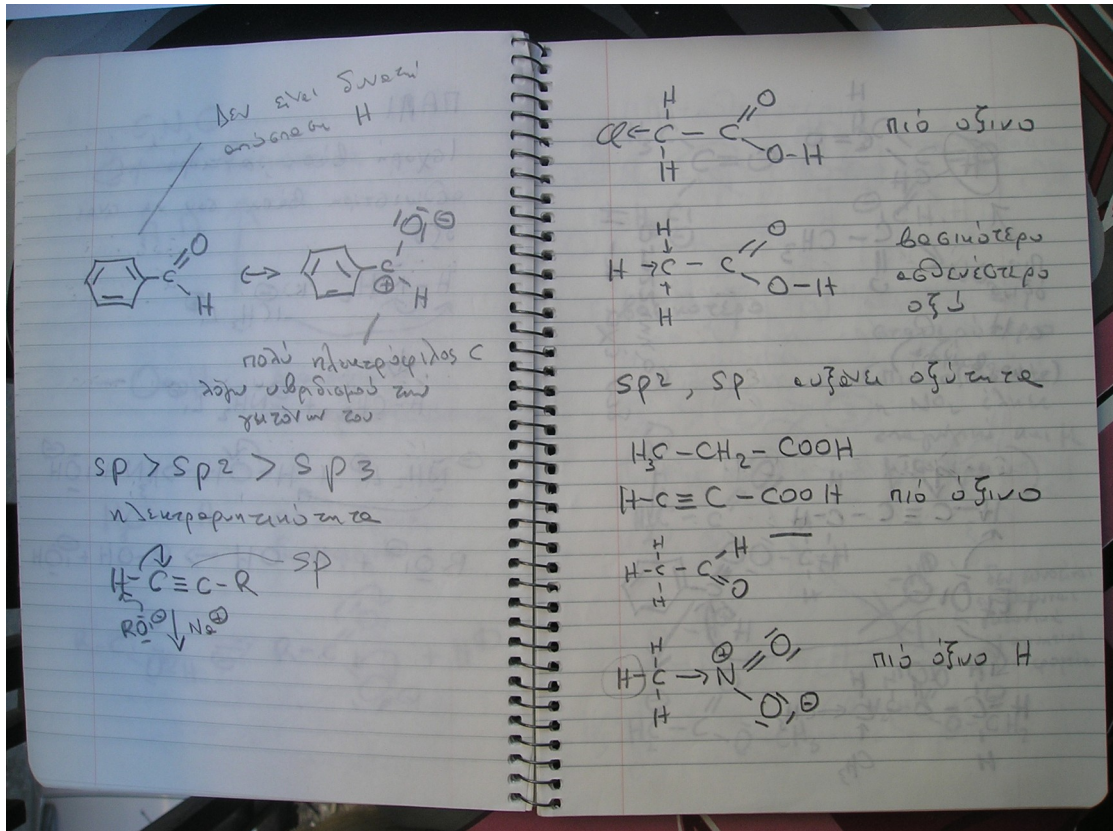 Δεν είναι δυνατή
απόσπαση H
C
O
H
↔
IŌI⊖
C
⊕
H
πολύ ηλεκτρόφιλος C
λόγω υβριδισμού των
γειτόνων του
sp > sp2 > sp3
ηλεκτραρνητικότητα
H-C≡C-R sp
RO⊖ ↓ Na⊕
H
Cl←C-C O
H O-H
πιό όξινο
H
H→C-C O
H O-H
βασικότερο
ασθενέστερο
οξύ
sp2, sp αυξάνει οξύτητα
H3C-CH2-COOH
H-C≡C-COOH πιό όξινο
H H
H-C-C
H O
H ⊕ O
H-C→N πιό όξινο H
H O⊖